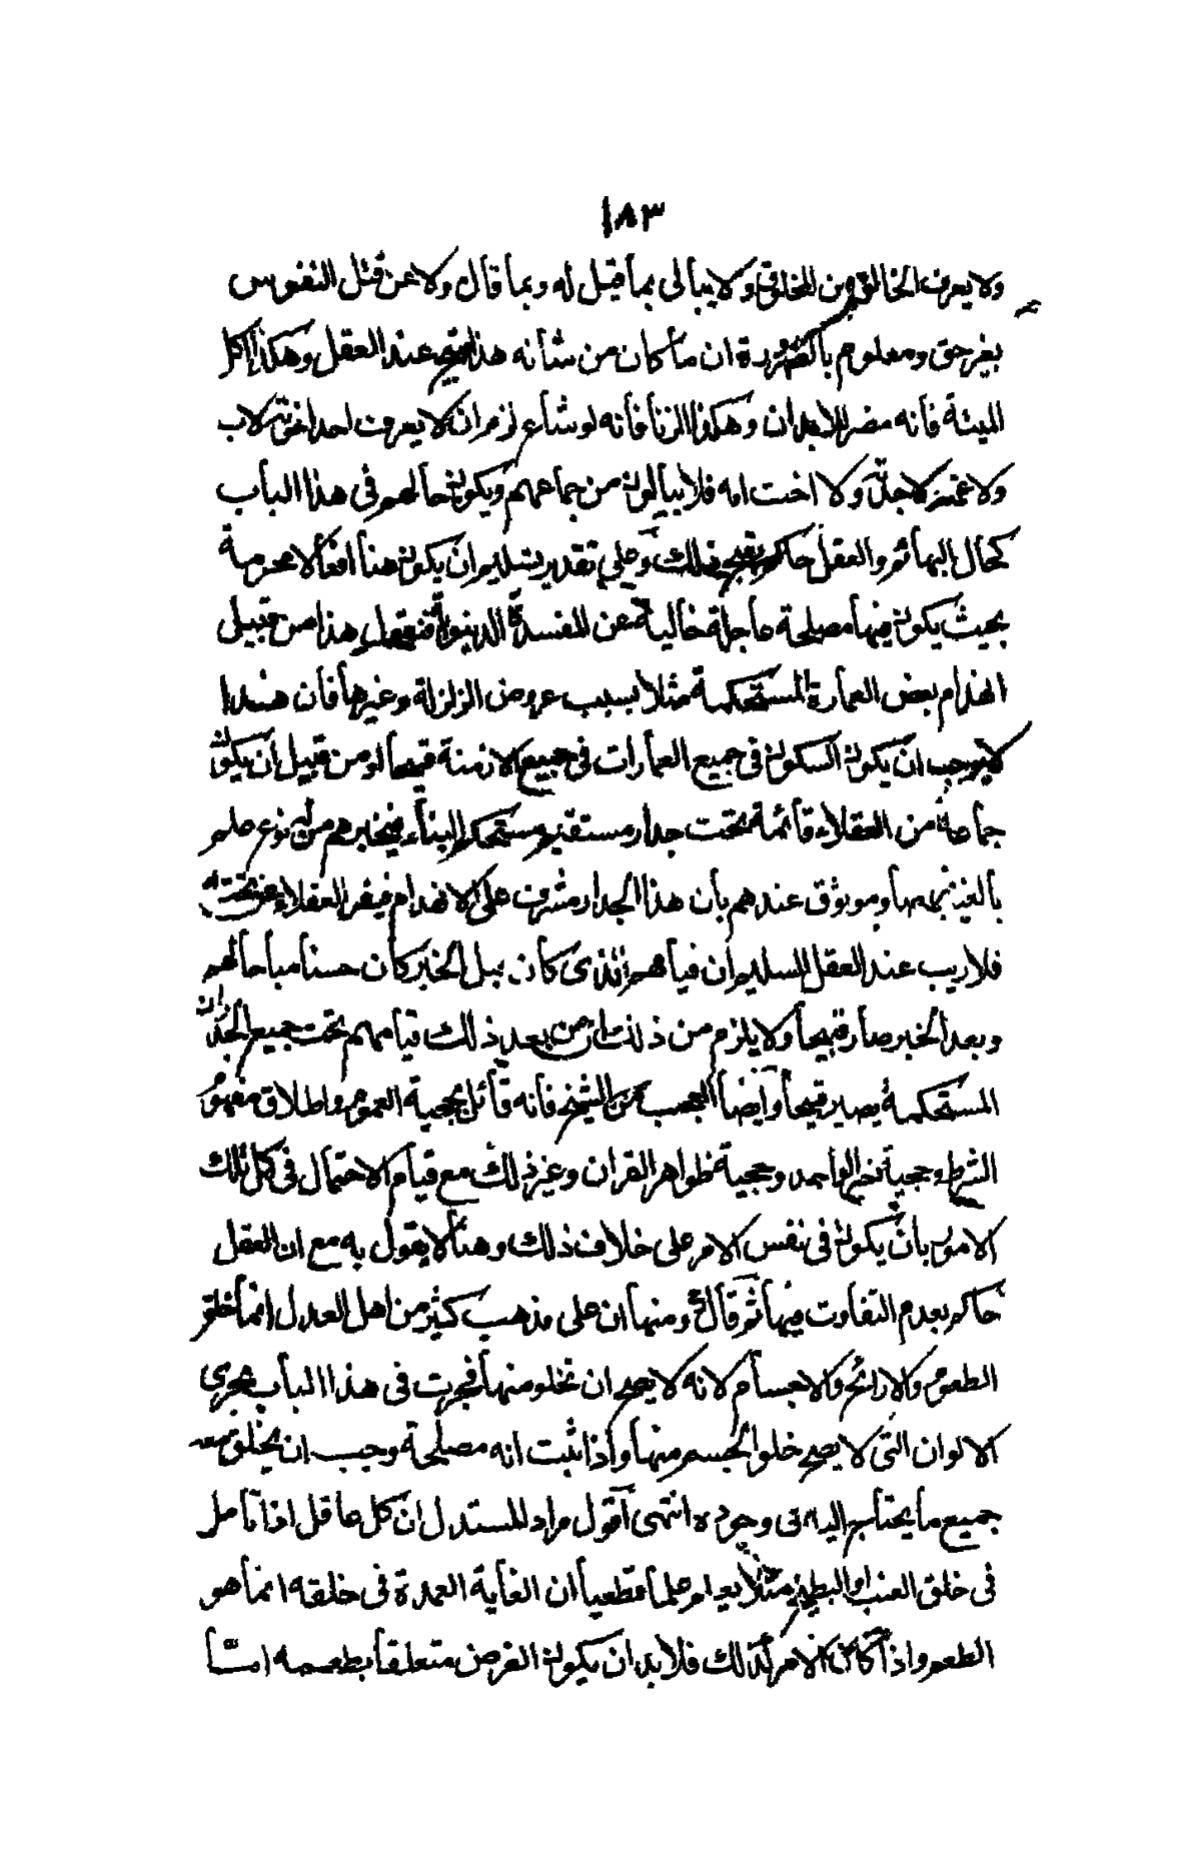 ١٨٣
ولا يعرف الخالق من المخلوق ولا يبالى بما قيل له وبما قال ولا عن قتل النفوس
بغير حق ومعلوم بالضرورة ان ما كان من شأنه هذا قبيح عند العقل وهكذا اكل
الميتة فانه مضر للابدان وهكذا الزنا فانه لو شاع لزم ان لا يعرف احد اخته لاب
ولا عمته لاجل ولا اخت امه فلا يبالون من جماعهم ويكون حالهم فى هذا الباب
كحال البهائم والعقل حاكم بقبح ذلك وعلى تقدير تسليم ان يكون هنا افعالا محرمة
بحيث يكون فيها مصلحة عاجلة خالية عن المفسدة الدنيوية فنقول هذا من قبيل
انهدام بعض العمارة المستحكمة مثلا بسبب عروض الزلزلة وغيرها فان هذا
لا يوجب ان يكون السكون فى جميع العمارات فى جميع الازمنة قبيحا او من قبيل ان يكون
جماعة من العقلاء قائمة تحت جدار مستقيم مستحكم البناء فيخبرهم من له نوع علم
بالغيب وموثوق عندهم بان هذا الجدار مشرف على الانهدام فيفر العقلاء عن تحته
فلا ريب عند العقل السليم ان قيامهم الذى كان قبل الخبر كان حسنا مباحا لهم
وبعد الخبر صار قبيحا ولا يلزم من ذلك ان من بعد ذلك قيامهم تحت جميع الجدران
المستحكمة يصير قبيحا وايضا العجب من الشيخ فانه قائل بحجية العموم واطلاق مفهوم
الشرط وحجية خبر الواحد وحجية ظواهر القران وغير ذلك مع قيام الاحتمال فى كل تلك
الامور بان يكون فى نفس الامر على خلاف ذلك وهنا لا يقول به مع ان العقل
حاكم بعدم التفاوت فيها ثم قال ومنها ان على مذهب كثير من اهل العدل انما خلق
الطعوم والارائح والاجسام لانه لا يصح ان تخلو منها فجرت فى هذا الباب مجرى
الالوان التى لا يصح خلو الجسم منها واذا ثبت انه مصلحة وجب ان يخلق معه
جميع ما يحتاج اليه فى وجوده انتهى اقول مراد المستدل ان كل عاقل اذا تامل
فى خلق العنب او البطيخ مثلا يعلم علما قطعيا ان الغاية العمدة فى خلقه انما هو
الطعم واذا كان الامر كذلك فلا بد ان يكون الغرض متعلقا بطعمه اما